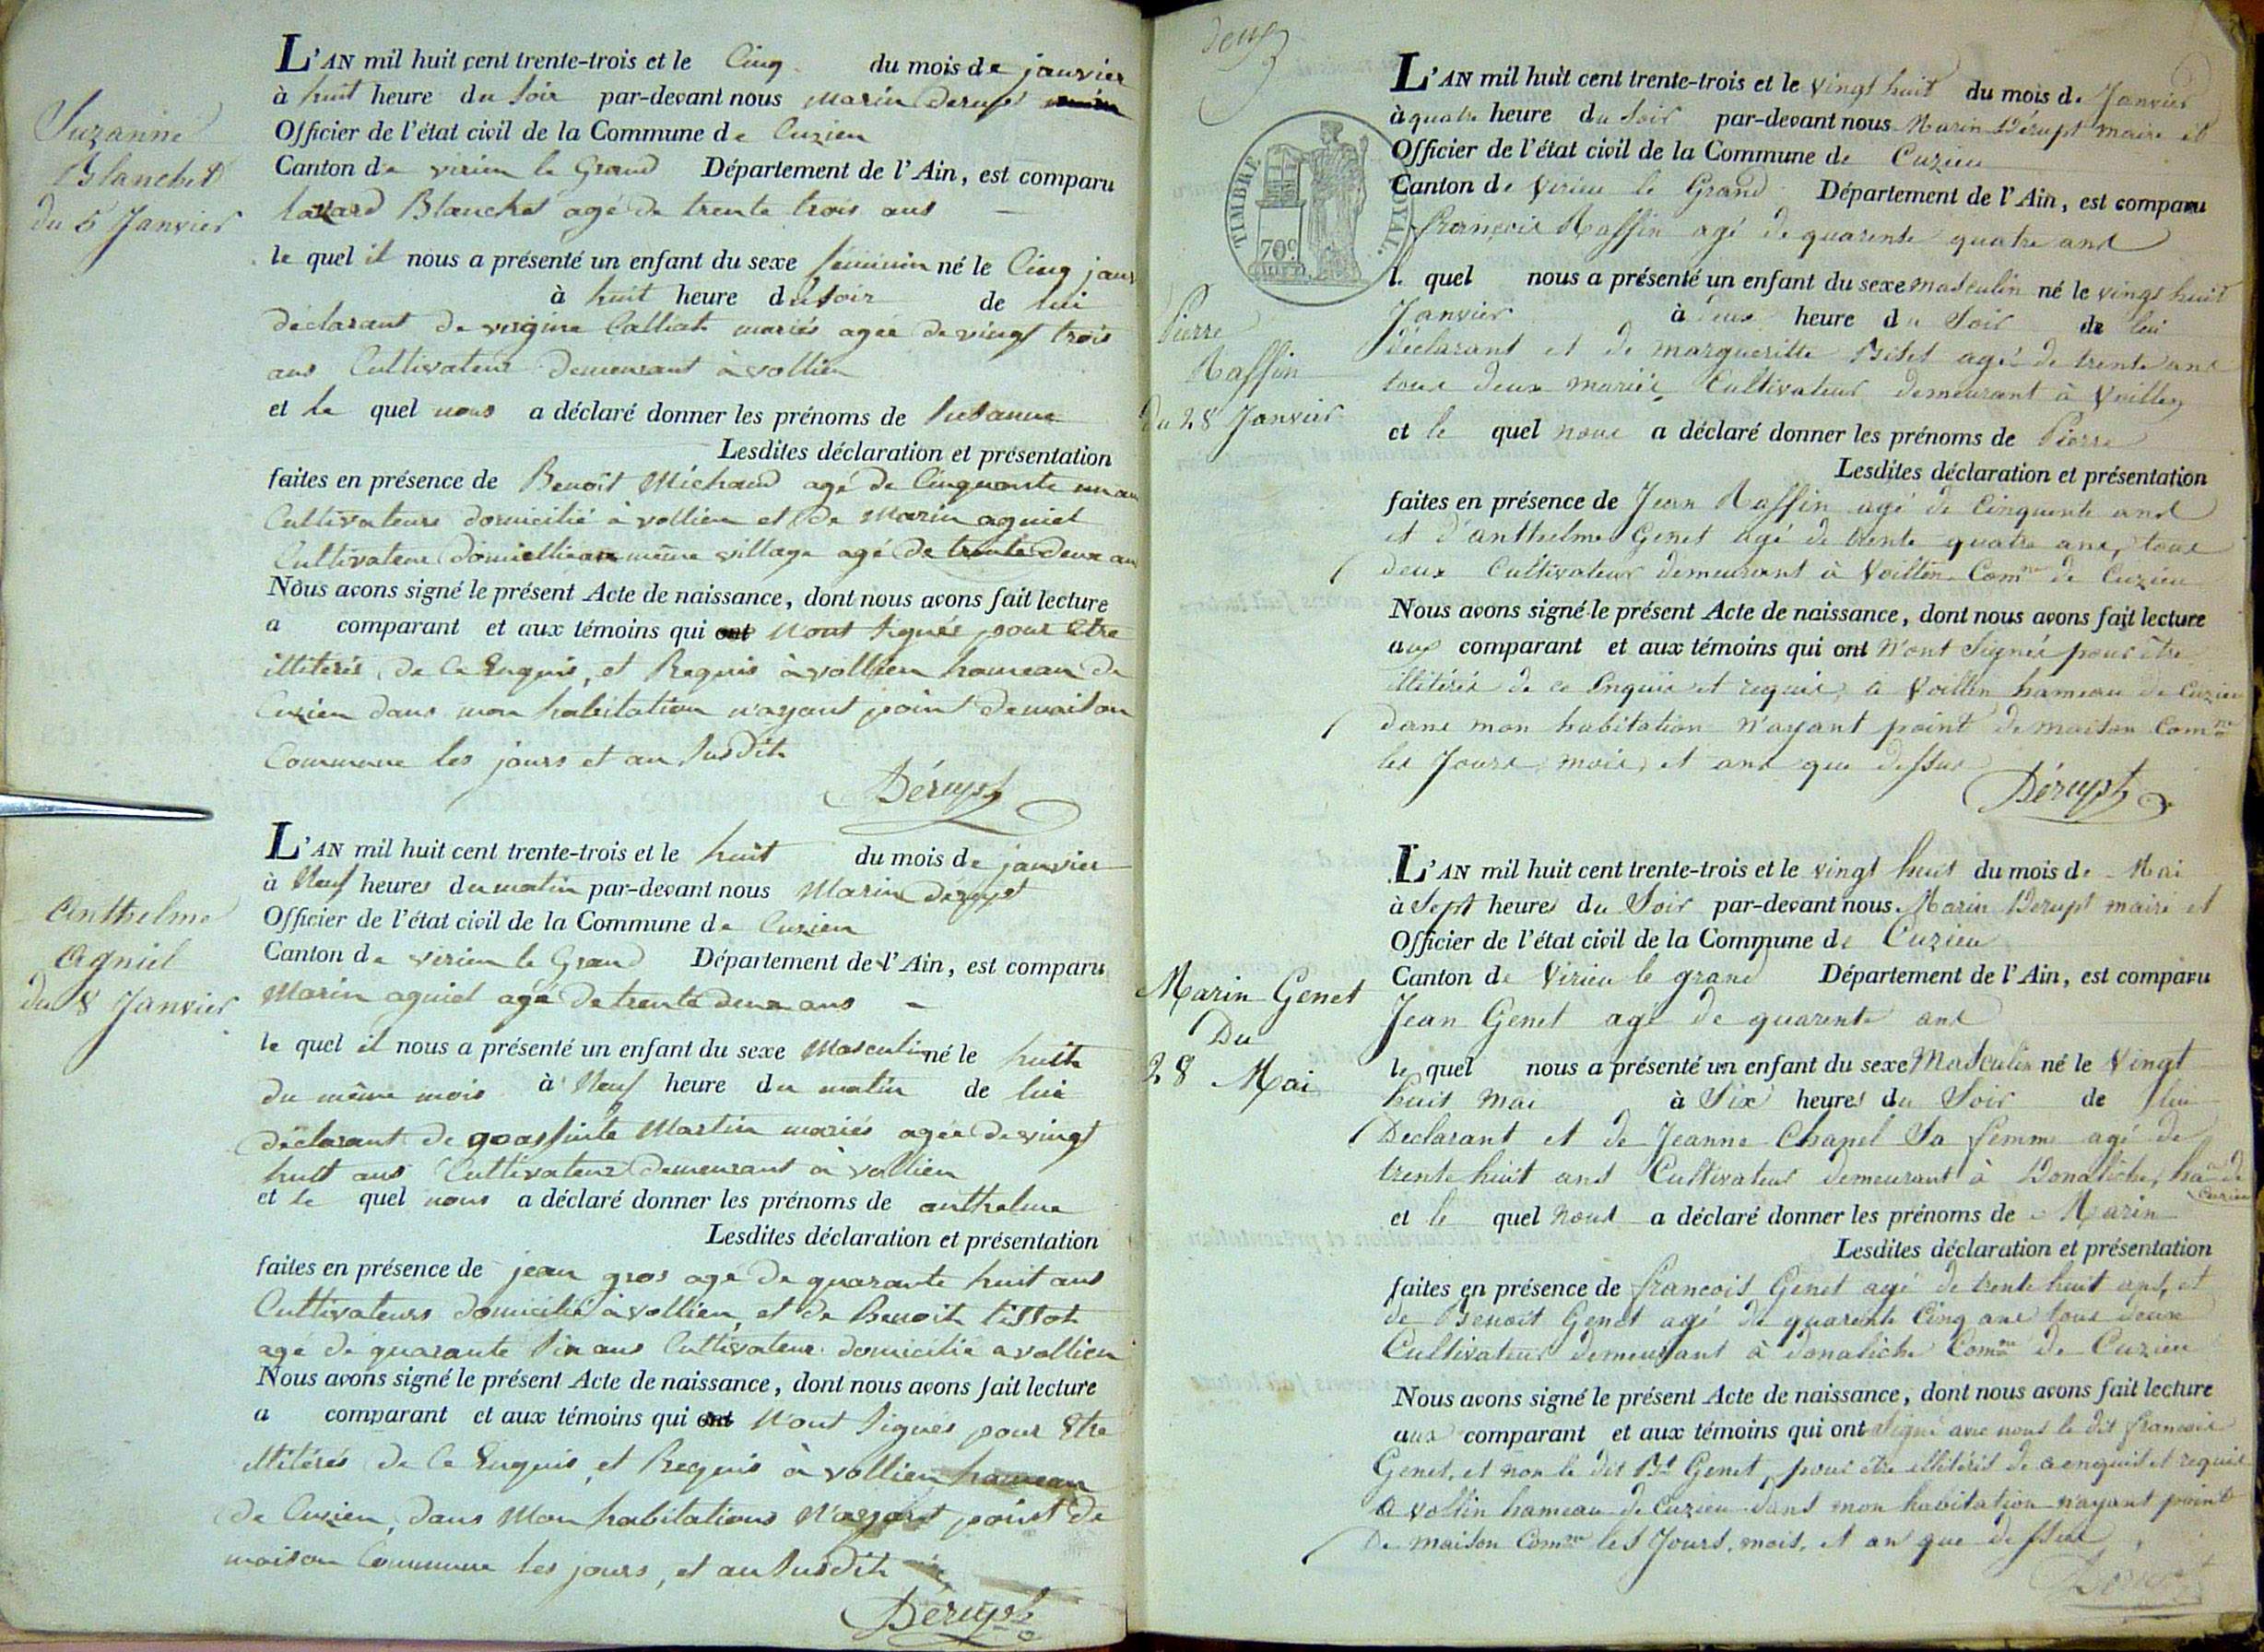 Suzanne
Blanchet
du 5 Janvier
L'AN mil huit cent trente-trois et le Cinq du mois de janvier
à huit heure du soir par-devant nous Marin Derupt
Officier de l'état civil de la Commune de Cuzieu
Canton de virieu le Grand Département de l'Ain, est comparu
lazard Blanchet agé de trente trois ans
le quel il nous a présenté un enfant du sexe féminin né le Cinq janv
à huit heure du soir de lui
déclarant de virginie Calliat mariés agée de vingt trois
ans Cultivateur demeurant à vollien
et le quel nous a déclaré donner les prénoms de Susanne
Lesdites déclaration et présentation
faites en présence de Benoît Michaud agé de Cinquante un an
Cultivateurs domicilié à vollien et de Marin agniel
Cultivateur domicillié au même village agé de trente deux an
Nous avons signé le présent Acte de naissance, dont nous avons fait lecture
a comparant et aux témoins qui ont N'ont signés pour être
illiterés, de ce Enquis, et Requis à vollien hameau de
Cuzieu dans mon habitation n'ayant point de maison
Commune les jours et an susdit
Dérupt
Anthelme
Agniel
du 8 Janvier
L'AN mil huit cent trente-trois et le huit du mois de janvier
à Neuf heures du matin par-devant nous Marin Dérupt
Officier de l'état civil de la Commune de Cuzieu
Canton de virieu le Grand Département de l'Ain, est comparu
Marin agniel agé de trente deux ans
le quel il nous a présenté un enfant du sexe Masculin né le huit
du même mois à Neuf heure du matin de lui
déclarant de Martin mariés agée de vingt
huit ans Cultivateur demeurant à vollien
et le quel nous a déclaré donner les prénoms de anthelme
Lesdites déclaration et présentation
faites en présence de jean gros agé de quarante huit ans
Cultivateurs domicilié à vollien, et de Benoit tissot
agé de quarante Six ans Cultivateur domicilié a vollien
Nous avons signé le présent Acte de naissance, dont nous avons fait lecture
a comparant et aux témoins qui ont N'ont signés pour être
illitérés de ce Enquis, et Requis à vollien hameau
de Cuzieu, dans Mon habitations N'ayant point de
maison Commune les jours, et an susdit
Dérupt
deux
TIMBRE ROYAL.
70c
Pierre
Raffin
du 28 Janvier
L'AN mil huit cent trente-trois et le vingt huit du mois de Janvier
à quatre heure du Soir par-devant nous Marin Dérupt maire et
Officier de l'état civil de la Commune de Cuzieu
Canton de Virieu le Grand Département de l'Ain, est comparu
françois Raffin agé de quarente quatre ans
l. quel nous a présenté un enfant du sexe masculin né le vingt huit
Janvier à deux heure du Soir de lui
déclarant et de margueritte Bitet agé de trente ans
tous deux mariés, Cultivateur demeurant à Voillien
et le quel nous a déclaré donner les prénoms de Pierre
Lesdites déclaration et présentation
faites en présence de Jean Raffin agé de Cinquente ans
et d'anthelme Genet agé de trente quatre ans, tous
deux Cultivateur demeurant à Voillin Comne de Cuzieu
Nous avons signé le présent Acte de naissance, dont nous avons fait lecture
aux comparant et aux témoins qui ont N'ont Signés pour être
illitérés de ce Enquis et requis, à Voillin hameau de Cuzieu
dans mon habitation N'ayant point de maison Comne
les Jours, mois, et ans que dessus
Dérupt
Marin Genet
Du
28 Mai
L'AN mil huit cent trente-trois et le vingt huit du mois de Mai
à Sept heures du Soir par-devant nous Marin Dérupt maire et
Officier de l'état civil de la Commune de Cuzieu
Canton de Virieu le grand Département de l'Ain, est comparu
Jean Genet agé de quarente ans
le quel nous a présenté un enfant du sexe Masculin né le Vingt
huit Mai à Six heures du Soir de lui
Declarant et de Jeanne Chapel Sa femme agé de
trente huit ans Cultivateur demeurant à Donaliche, hau de
Cuzieu
et le quel Nous a déclaré donner les prénoms de Marin
Lesdites déclaration et présentation
faites en présence de francois Genet agé de trente huit ans, et
de Benoît Genet agé de quarente Cinq ans tous deux
Cultivateur demeurant à donaliche Comne de Cuzieu
Nous avons signé le présent Acte de naissance, dont nous avons fait lecture
aux comparant et aux témoins qui ont signé avec nous le dit francois
Genet, et non le dit Bt Genet, pour être illitérés de ce enquis et requis
A vollin hameau de Cuzieu dans mon habitation n'ayant point
De maison Comne les Jours, mois, et an que dessus
Dérupt